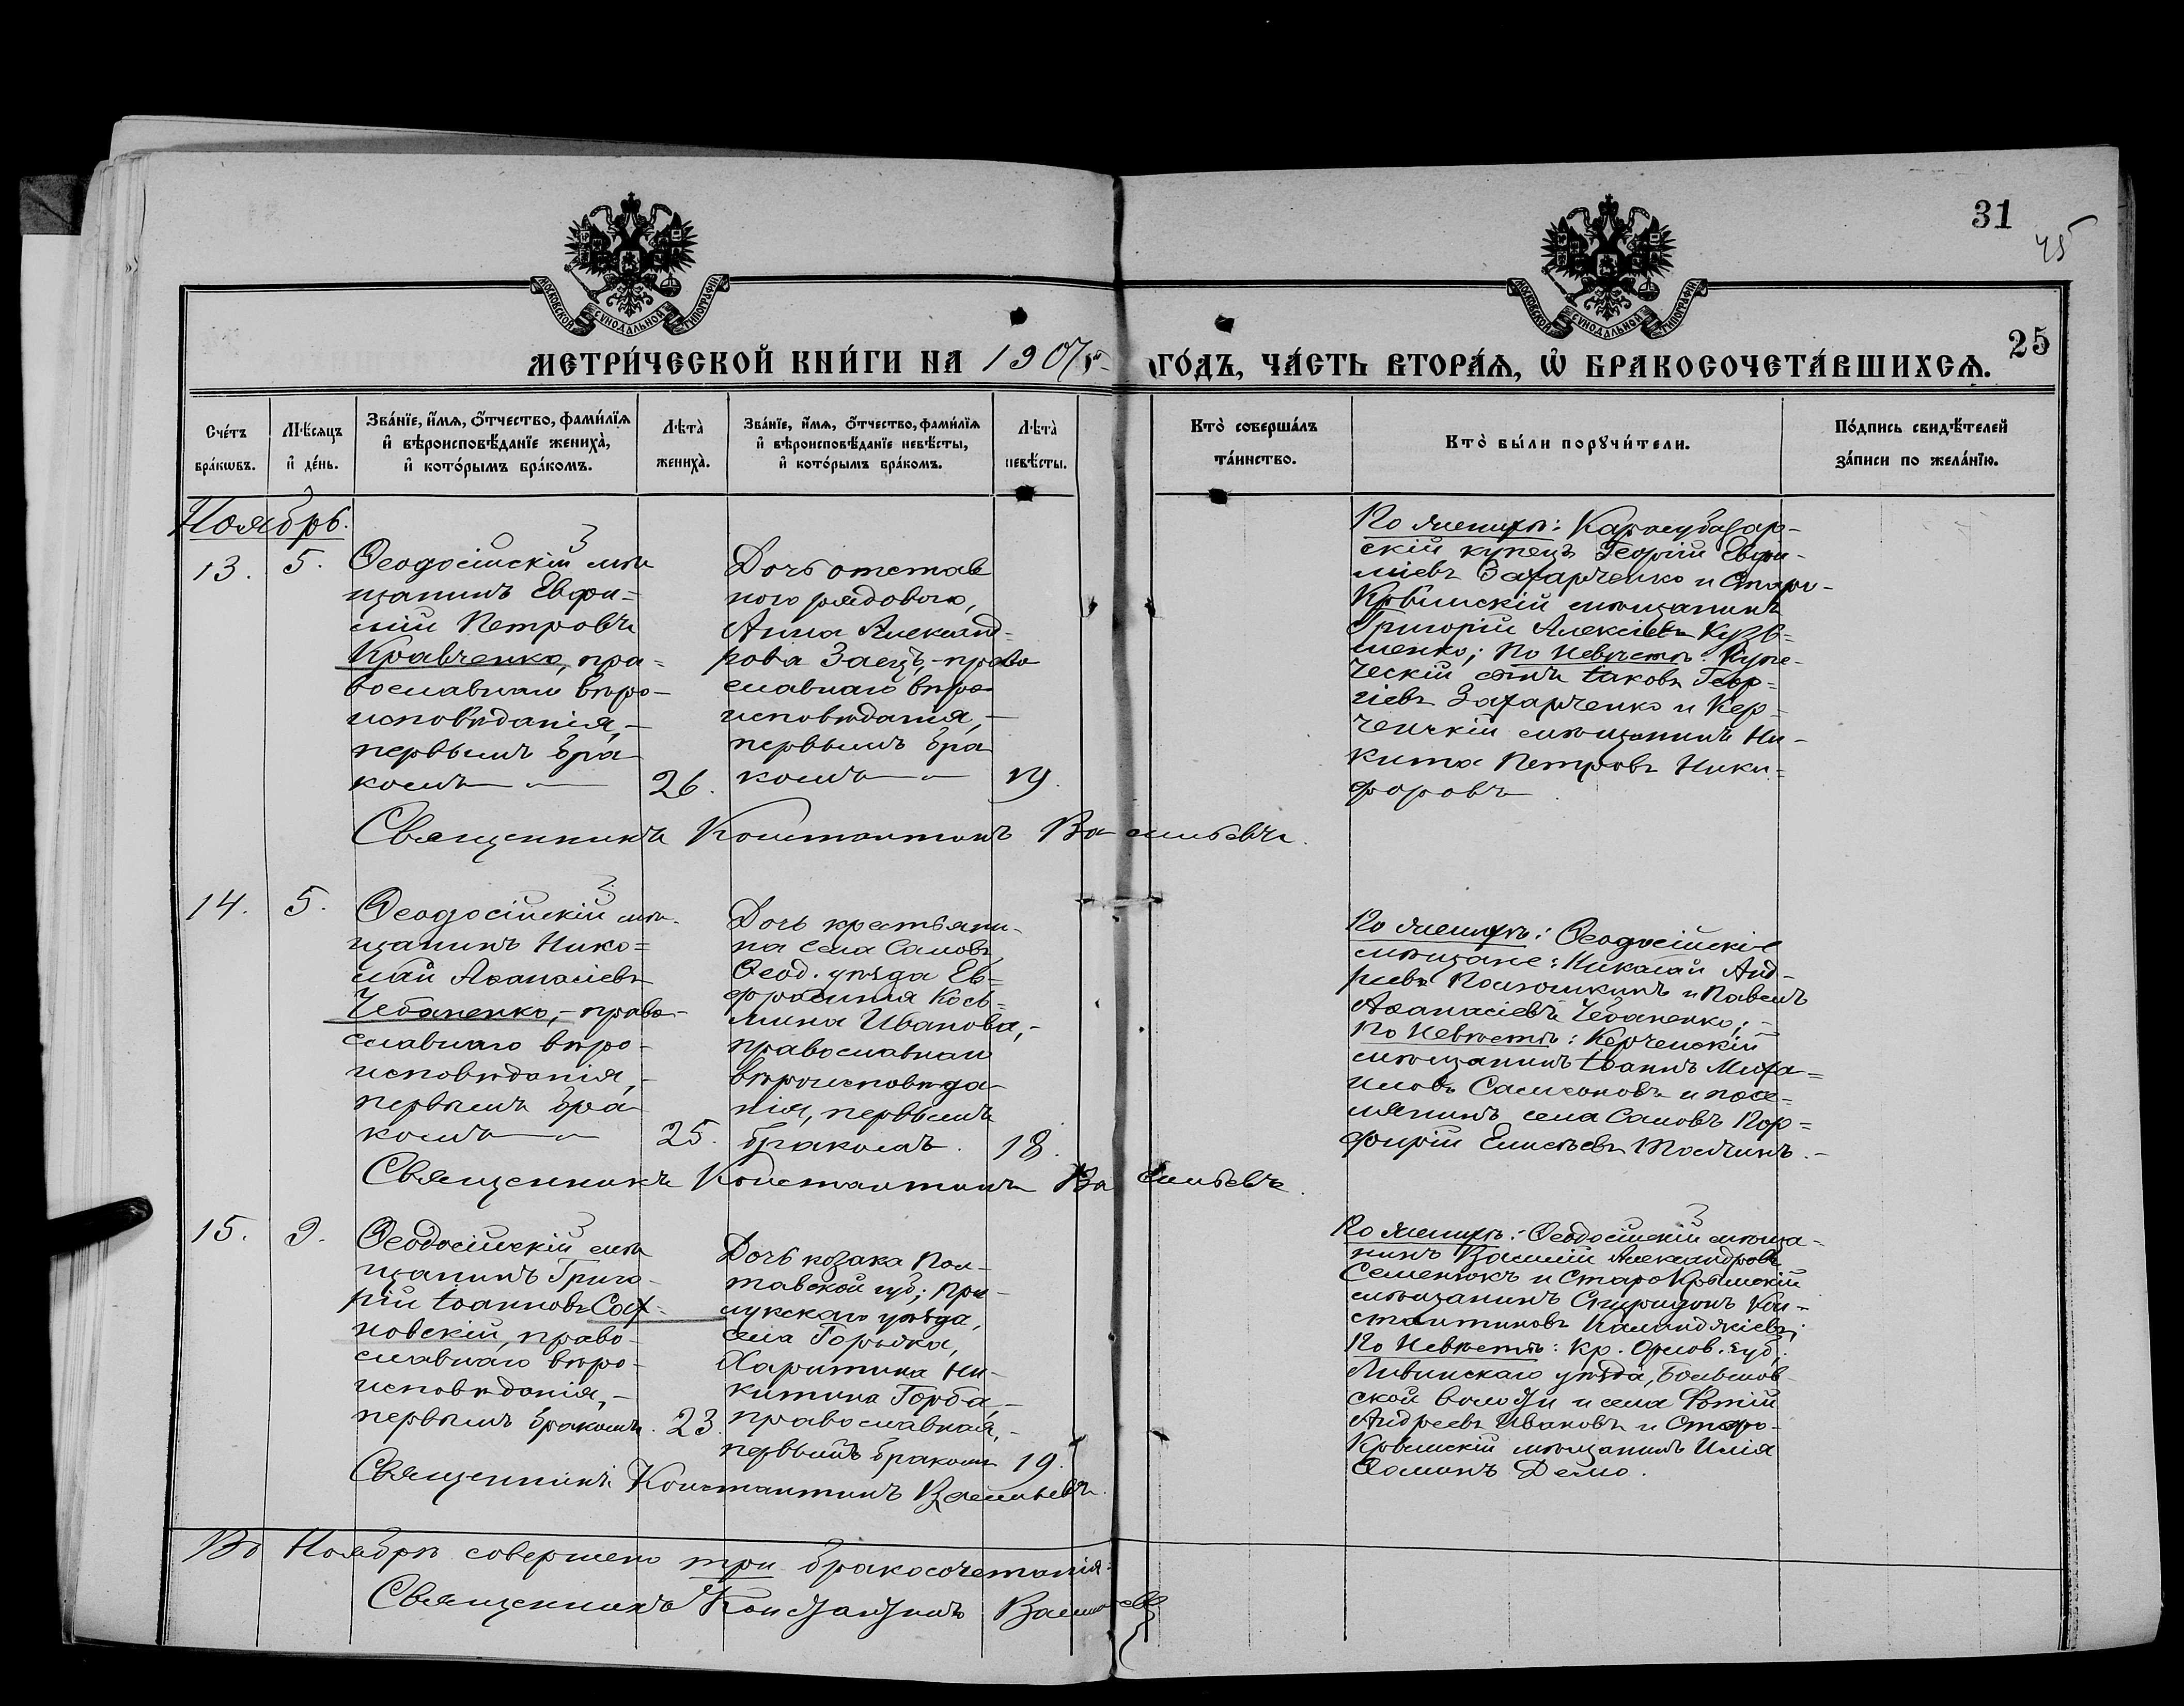 31
45
25
МОСКОВСКОЙ СѴНОДАЛЬНОЙ ТИПОГРАФІИ
МОСКОВСКОЙ СѴНОДАЛЬНОЙ ТИПОГРАФІИ
МЕТРИ́ЧЕСКОЙ КНИ́ГИ НА 1907 ГО́ДЪ, ЧА́СТЬ ВТОРА́Ѧ, Ѿ БРАКОСОЧЕТА́ВШИХСѦ.
Сче́тъ
бра́кωвъ.
Мѣ́сяцъ
и҆ де́нь.
Зва́нїе, и҆́мя, ѻ҆́тчество, фами́лїя
и҆ вѣроисповѣ́данїе жениха̀,
и҆ кото́рымъ бра́комъ.
Лѣта̀
жениха̀.
Зва́нїе, и҆́мя, ѻ҆́тчество, фами́лїя
и҆ вѣроисповѣ́данїе невѣ́сты,
и҆ кото́рымъ бра́комъ.
Лѣта̀
невѣ́сты.
Кто̀ соверша́лъ
та́инство.
Кто̀ бы́ли порꙋчи́тели.
По́дпись свидѣ́телей
за́писи по жела́нїю.
Ноябрь.
13.
5.
Ѳеодосійскій мѣ
щанинъ Евфи=
мій Петровъ
Кравченко, пра=
вославнаго вѣро-
исповѣданія,-
первымъ бра
комъ
26.
Дочь отстав
ного рядового,
Анна Александ-
рова Заецъ,-право
славнаго вѣро
исповѣданія,-
первымъ бра
комъ
19.
По женихѣ: Карасубазар-
скій купецъ Георгій Евфи-
міевъ Захарченко и Старо-
Крымскій мѣщанинъ
Григорій Алексіевъ Кузь=
менко; По невѣстѣ: Купе-
ческій сынъ Іаковъ Геор=
гіевъ Захарченко и Кер-
ченскій мѣщанинъ Ни-
кита Петровъ Ники-
форовъ
Священникъ Константинъ Васильевъ.
14.
5.
Ѳеодосійскій мѣ-
щанинъ Нико=
лай Аѳанасіевъ
Чебаненко,- право-
славнаго вѣро-
исповѣданія,-
первымъ бра
комъ
25.
Дочь крестьяни-
на села Саловъ
Ѳеод. уѣзда Ев=
фросинія Косъ-
мина Иванова,-
православнаго
вѣроисповѣда-
нія, первымъ
бракомъ.
18.
По женихѣ: Ѳеодосійскіе
мѣщане: Николай Анд-
реевъ и Павелъ
Аѳанасіевъ Чебаненко;-
По невѣстѣ: Керченскій
мѣщанинъ Іоаннъ Миха=
иловъ Самсоновъ и посе=
лянинъ села Саловъ Пор=
фирій Елисѣевъ .-
Священникъ Константинъ Васильевъ.
15.
9.
Ѳеодосійскій мѣ
щанинъ Григо-
рій Іоанновъ Сах-
новскій, право-
славнаго вѣро-
исповѣданія,-
первымъ бракомъ.
23.
Дочь козака Пол-
тавской губ; При-
лукскаго уѣзда,
села ,
Харитина Ни-
китина Горба,-
православная,-
первымъ бракомъ
19.
По женихѣ: Ѳеодосійскій мѣща-
нинъ Василій Александровъ
Семенюкъ и СтароКрымскій
мѣщанинъ Спиридонъ Кон-
стантиновъ ;
По невѣстѣ: кр. Орлов. губ.
Ливинскаго уѣзда,
ской волости и села Фотій
Андреевъ Ивановъ и Старо-
Крымскій мѣщанинъ Илія
Ѳоминъ Демо.
Священникъ Константинъ Васильевъ.
Въ Ноябрѣ совершено три бракосочетанія:
Священникъ Константинъ Васильевъ